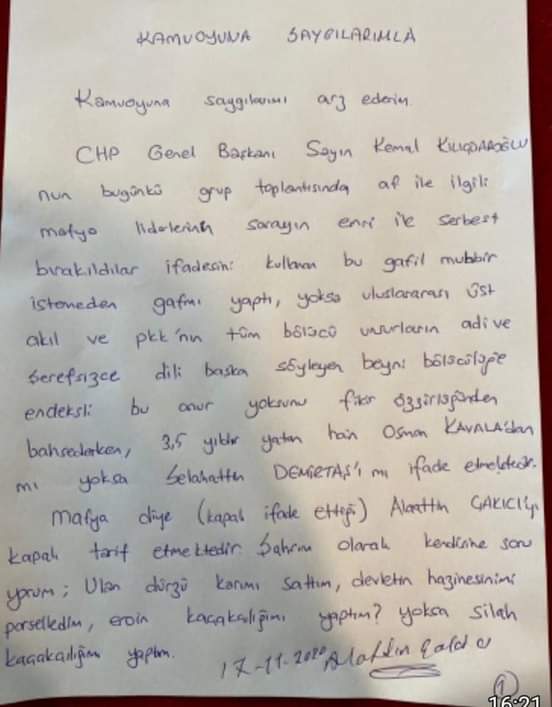 KAMUOYUNA SAYGILARIMLA
Kamuoyuna saygılarımı arz ederim.
CHP Genel Başkanı Sayın Kemal KILIÇDAROĞLU
nun bugünkü grup toplantısında af ile ilgili
mafya liderlerinin sarayın emri ile serbest
bırakıldılar ifadesini kullanan bu gafil muhbir
istemeden gafmı yaptı, yoksa uluslararası üst
akıl ve pkk'nın tüm bölücü unsurların adi ve
şerefsizce dili başka söyleyen beyni bölücülüğe
endeksli bu onur yoksunu fikir özgürlüğünden
bahsederken, 3,5 yıldır yatan hain Osman KAVALA'dan
mı yoksa Selahattin DEMİRTAŞ'ı mı ifade etmektedir.
Mafya diye (kapalı ifade ettiği) Alaattin ÇAKICI'yı
kapalı tarif etmektedir. Şahsım olarak kendisine soru
yorum; Ulan dürzü karımı sattım, devletin hazinesinimi
parselledim, eroin kaçakçılığımı yaptım? yoksa silah
kaçakçılığımı yaptım.
17-11-2020
1
16:21